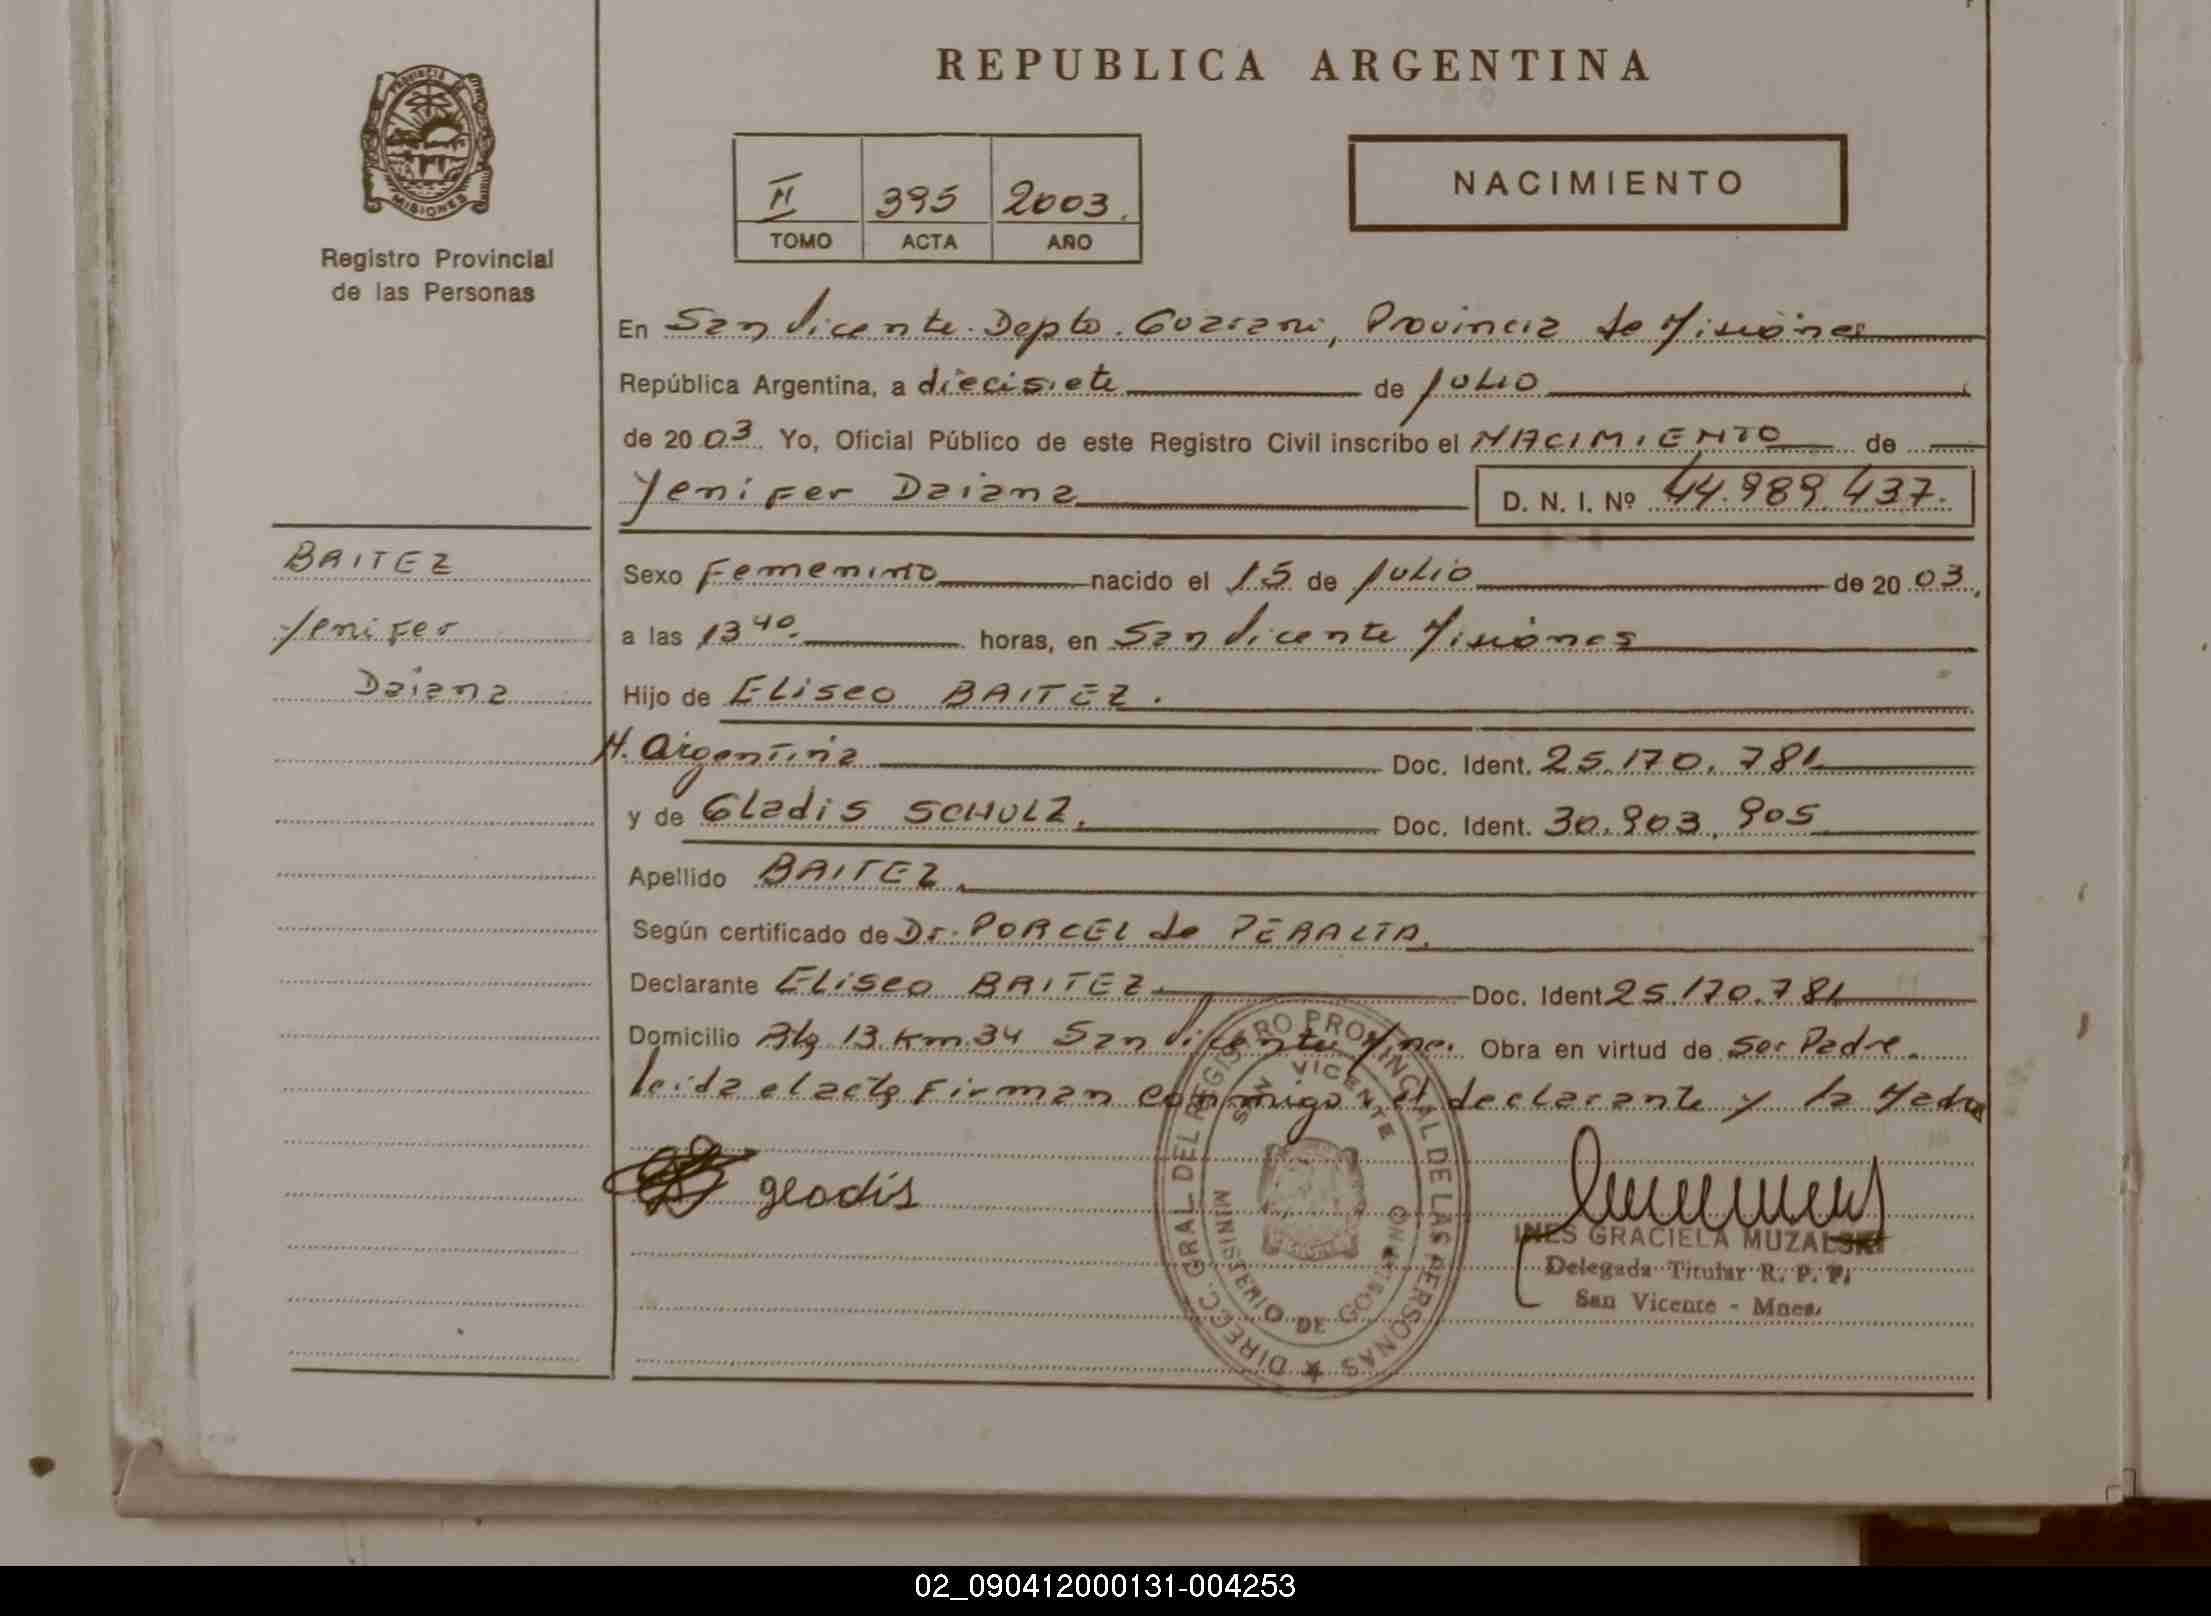 REPUBLICA ARGENTINA
PROVINCIA DE MISIONES
Registro Provincial
de las Personas
II 395 2003.
TOMO ACTA AÑO
NACIMIENTO
En San Vicente. Depto. Guarani, Provincia de Misiones
República Argentina, a diecisiete de julio
de 2003. Yo, Oficial Público de este Registro Civil inscribo el NACIMIENTO de
Yenifer Daiana D. N. I. Nº 44.989.437.
BAITEZ
Yenifer
Daiana
Sexo Femenino nacido el 15 de julio de 2003,
a las 13 40. horas, en San Vicente Misiones
Hijo de Eliseo BAITEZ.
N. Argentina Doc. Ident. 25.170.781
y de Gladis SCHULZ. Doc. Ident. 30.903.905
Apellido BAITEZ.
Según certificado de Dr. PORCEL de PERALTA.
Declarante Eliseo BAITEZ. Doc. Ident 25.170.781
Domicilio 13 Km. 34 San Vicente Mnes. Obra en virtud de ser Padre.
leida el acta Firman conmigo el declarante y la Madre
gladis
DIRECC. GRAL. DEL REGISTRO PROVINCIAL DE LAS PERSONAS
SAN VICENTE
MINISTERIO DE GOBIERNO
INES GRACIELA MUZALSKI
Delegada Titular R. P. P.
San Vicente - Mnes.
02_090412000131-004253